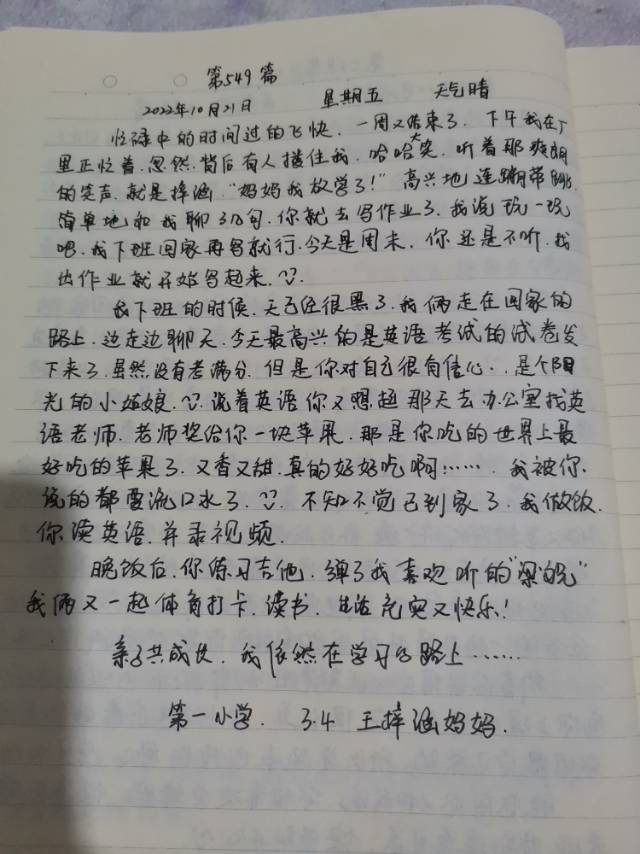 第549篇
2022年10月21日 星期五 天气晴
忙碌中的时间过的飞快，一周又结束了，下午我在厂
里正忙着，忽然，背后有人搂住我，哈哈大笑，听着那爽朗
的笑声，就是梓涵，“妈妈我放学了！”高兴地连蹦带跳，
简单地和我聊了几句，你就去写作业了，我说玩一玩
吧，我下班回家再写就行，今天是周末，你还是不听，找
出作业就开始写起来。
我下班的时候，天已经很黑了，我俩走在回家的
路上，边走边聊天，今天最高兴的是英语考试的试卷发
下来了，虽然没有考满分，但是你对自己很有信心..是个阳
光的小姑娘，说着英语你又想起那天去办公室找英
语老师，老师奖给你一块苹果，那是你吃的世界上最
好吃的苹果了，又香又甜，真的好好吃啊！…… 我被你
说的都要流口水了，不知不觉已到家了，我做饭，
你读英语，并录视频。
晚饭后，你练习吉他，弹了我喜欢听的“梁婉”
我俩又一起体育打卡，读书，生活充实又快乐！
亲子共成长，我依然在学习的路上……
第一小学. 3.4 王梓涵妈妈.